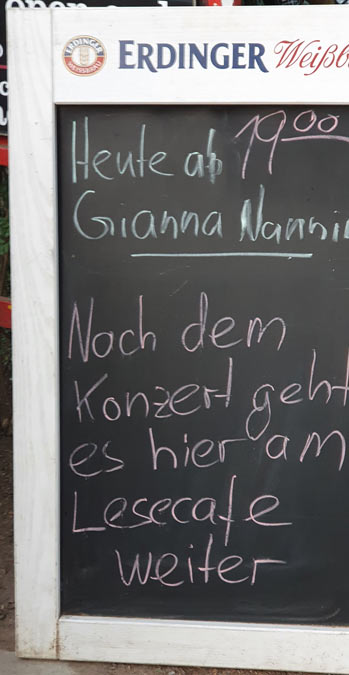 ERDINGER
ERDINGER Weißb
Heute ab 19⁰⁰
Gianna Nannin
Nach dem
Konzert geht
es hier am
Lesecafe
weiter